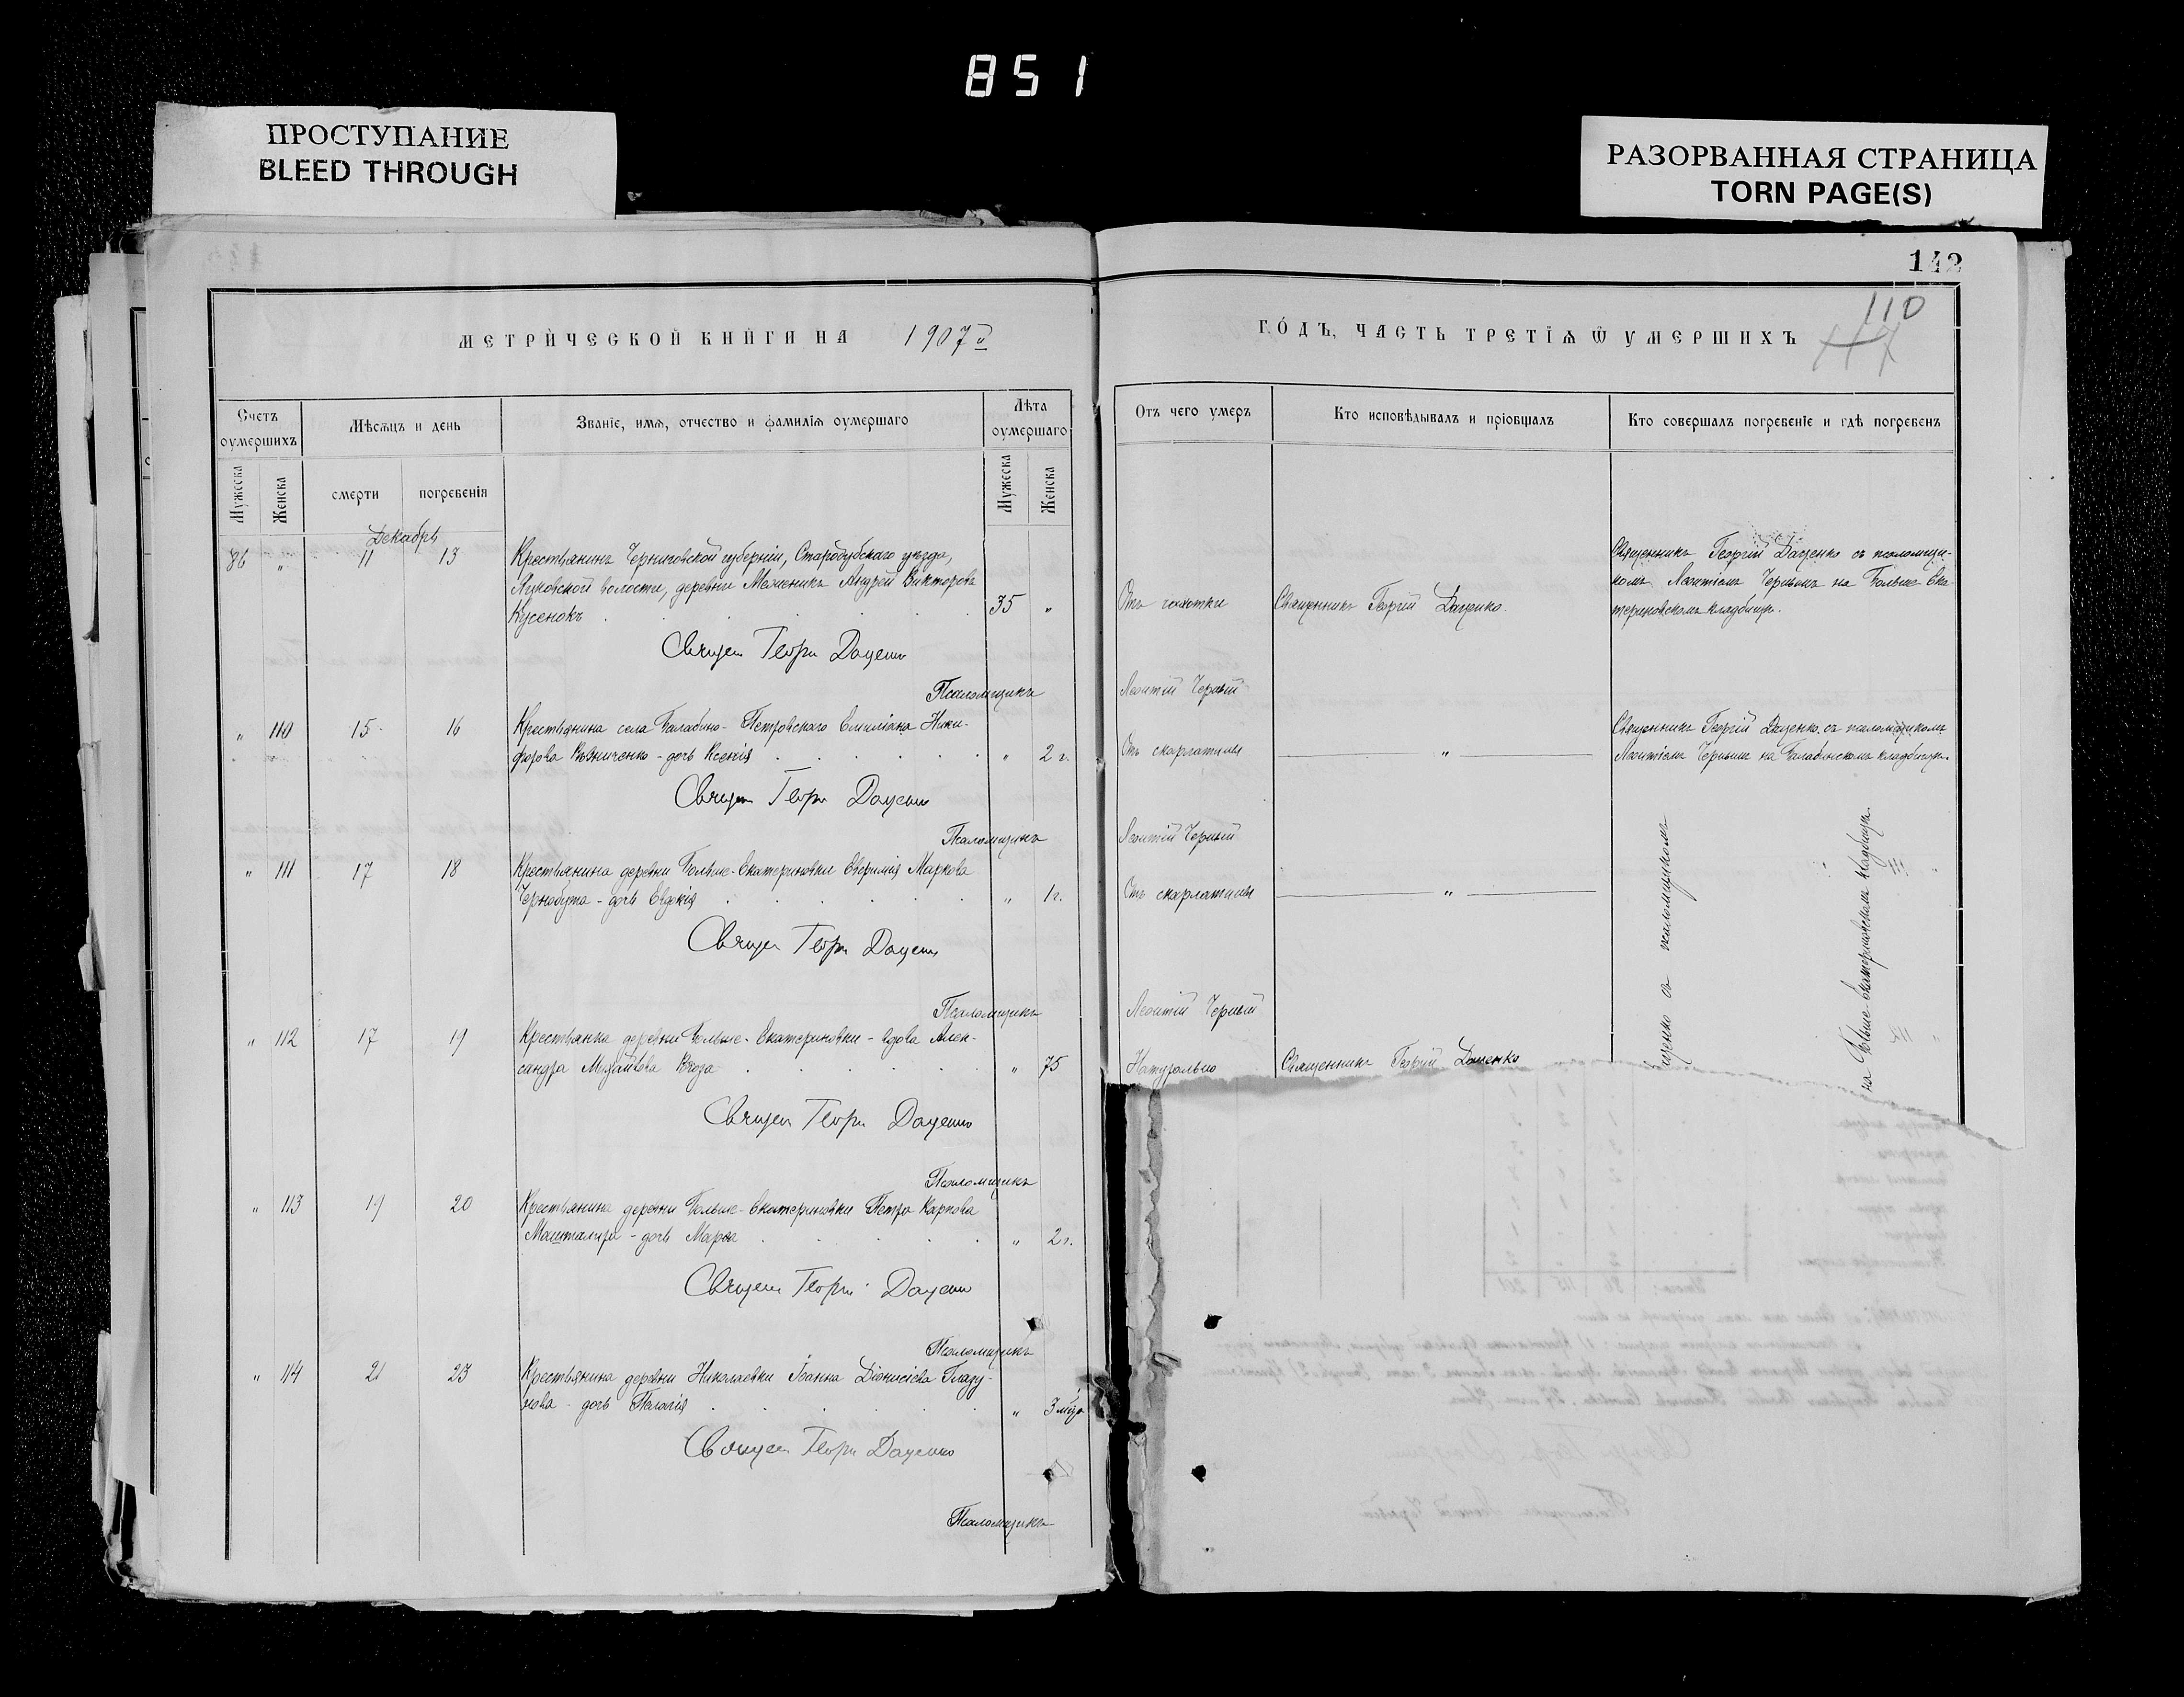 851
ПРОСТУПАНИЕ
BLEED THROUGH
РАЗОРВАННАЯ СТРАНИЦА
TORN PAGE(S)
142
110
117
МЕТРИ́ЧЕСКОЙ КНИ́ГИ НА 1907й
ГО́ДЪ, ЧАСТЬ ТРЕТІѦ Ѿ УМЕРШИХЪ
Счетъ оумершихъ
Мѣсѧцъ и день
Званіе, имѧ, отчество и фамиліѧ оумершаго
Лѣта оумершаго
Отъ чего умеръ
Кто исповѣдывалъ и пріобщалъ
Кто совершалъ погребеніе и гдѣ погребенъ
Мужеска
Женска
смерти
погребенія
Мужеска
Женска
Декабрь
86 " 11 13 Крестьянинъ Черниговской губерніи, Стародубскаго уѣзда,
волости, деревни Андрей Викторовъ
35 " Отъ чахотки Священникъ Георгій Даценко
Священникъ Георгій Даценко съ псаломщи-
комъ Леонтіемъ Чернымъ на Больше-Ека-
териновскомъ кладбищѣ.
Священ Георгій Даценко
Псаломщикъ Леонтій Черный
" 110 15 16 Крестьянина села Балабино-Петровскаго Емиліана Ники-
форова - дочь Ксенія " 2 г. Отъ скарлатины "
Священникъ Георгій Даценко съ псаломщикомъ
Леонтіемъ Чернымъ на Балабинскомъ кладбищѣ.
Священ Георгій Даценко
Псаломщикъ Леонтій Черный
" 111 17 18 Крестьянина деревни Больше-Екатериновки Евфимія Маркова
- дочь Евдокія " 1 г. Отъ скарлатины "
Священ Георгій Даценко
Псаломщикъ Леонтій Черный
" 112 17 19 Крестьянка деревни Больше-Екатериновки - вдова Алек-
сандра Михайлова Коза " 75 Натурально Священникъ Георгій Даценко
Священ Георгій Даценко
Псаломщикъ
аценко съ псаломщикомъ
на Больше-Екатериновскомъ кладбищѣ.
" 113 19 20 Крестьянина деревни Больше-Екатериновки Петра Карпова
Машталира - дочь Марѳа " 2 г.
Священ Георгій Даценко
Псаломщикъ
" 114 21 23 Крестьянина деревни Николаевки Іоанна Діонисіева Глазу-
нова - дочь Пелагія " 3 мѣс.
Священ Георгій Даценко
Псаломщикъ